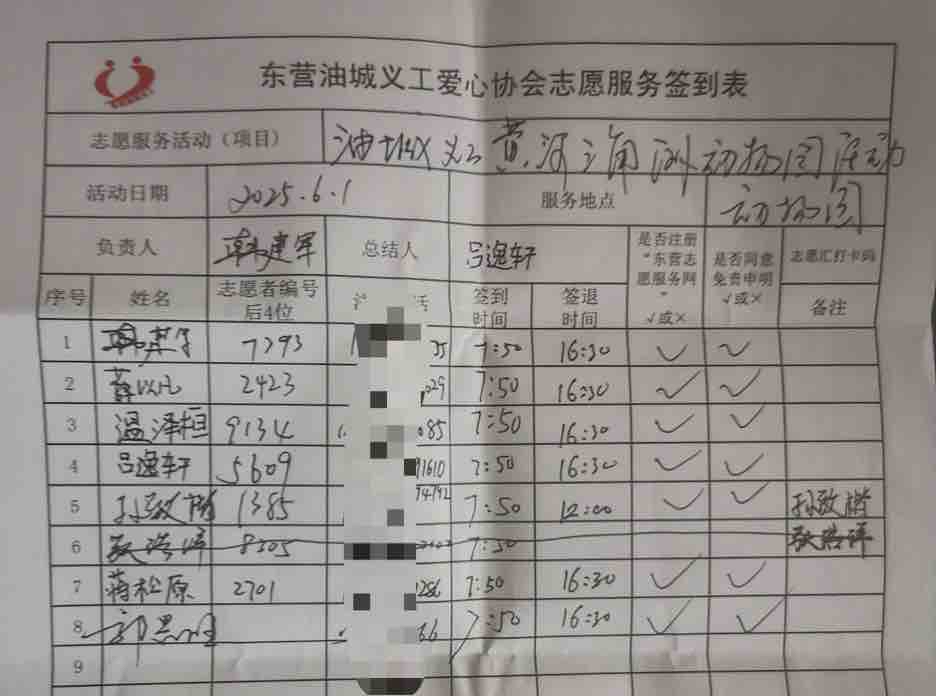 东营油城义工爱心协会志愿服务签到表
志愿服务活动（项目） 油城义工黄河三角洲动物园活动
活动日期 2025.6.1 服务地点 动物园
负责人 韩建军 总结人 吕逸轩 是否注册“东营志愿服务网” √或× 是否同意免责申明 √或× 志愿汇打卡码
序号 姓名 志愿者编号后4位 话 签到时间 签退时间 备注
1 7393 35 7:50 16:30 ✓ ✓
2 2423 029 7:50 16:30 ✓ ✓
3 温泽桓 9134 085 7:50 16:30 ✓ ✓
4 吕逸轩 5609 91610 7:50 16:30 ✓ ✓
5 孙致楷 1385 74792 7:50 12:00 ✓ ✓ 孙致楷
6 8305 7:50
7 蒋松原 2701 1286 7:50 16:30 ✓ ✓
8 郭 66 7:50 16:30 ✓ ✓
9